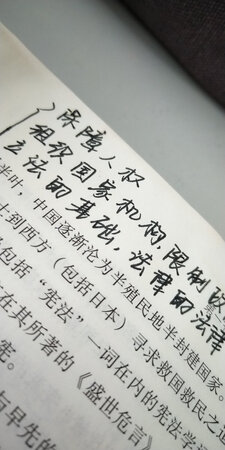 保障人权
组织国家机构,限制
立法的基础,法律的法律
半叶,中国逐渐沦为半殖民地半封建国家。
士到西方(包括日本)寻求救国救民之道
包括“宪法”一词在内的宪法学
在其所著的《盛世危言》
宪。
与早先的